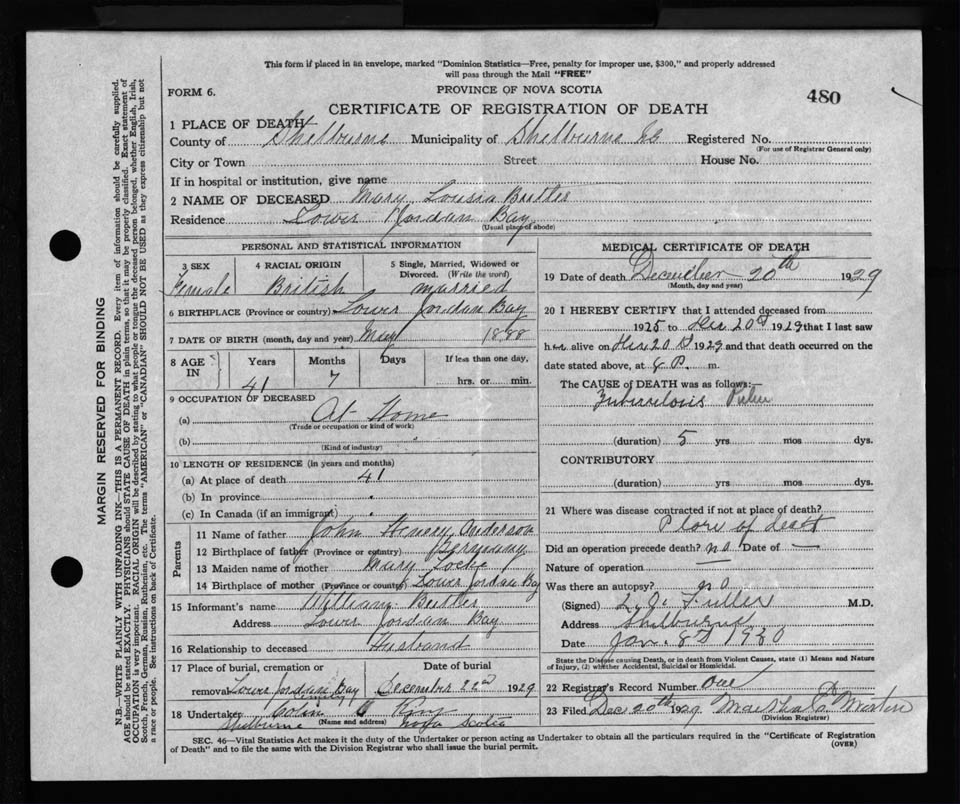 This form if placed in an envelope, marked "Dominion Statistics—Free, penalty for improper use, $300," and properly addressed
will pass through the Mail "FREE"
FORM 6.
PROVINCE OF NOVA SCOTIA
480
CERTIFICATE OF REGISTRATION OF DEATH
1 PLACE OF DEATH
County of Shelburne Municipality of Shelburne Co Registered No.
(For use of Registrar General only)
City or Town Street House No.
If in hospital or institution, give name
2 NAME OF DECEASED Mary Lousia Butler
Residence Lower Jordan Bay
(Usual place of abode)
PERSONAL AND STATISTICAL INFORMATION
3 SEX 4 RACIAL ORIGIN 5 Single, Married, Widowed or
Divorced. (Write the word)
Female British married
6 BIRTHPLACE (Province or country) Lower Jordan Bay
7 DATE OF BIRTH (month, day and year) May 1888
8 AGE IN Years Months Days If less than one day,
41 7 hrs. or min.
9 OCCUPATION OF DECEASED
(a) At Home
(Trade or occupation or kind of work)
(b)
(Kind of industry)
10 LENGTH OF RESIDENCE (in years and months)
(a) At place of death 41
(b) In province
(c) In Canada (if an immigrant)
Parents
11 Name of father John Henery Anderson
12 Birthplace of father (Province or country)
13 Maiden name of mother Mary Locke
14 Birthplace of mother (Province or country) Lower Jordan Bay
15 Informant's name William Butler
Address Lower Jordan Bay
16 Relationship to deceased Husband
17 Place of burial, cremation or Date of burial
removal Lower Jordan Bay December 22nd 1929
18 Undertaker Colin
(Name and address)
Shelburne Nova Scotia
MEDICAL CERTIFICATE OF DEATH
19 Date of death December 20th 1929
(Month, day and year)
20 I HEREBY CERTIFY that I attended deceased from
1925 to Dec 20 1929 that I last saw
her alive on Dec 20 1929 and that death occurred on the
date stated above, at P. m.
The CAUSE of DEATH was as follows:—
Tuberculosis
(duration) 5 yrs mos dys.
CONTRIBUTORY
(duration) yrs mos dys.
21 Where was disease contracted if not at place of death?
Place of death
Did an operation precede death? no Date of —
Nature of operation —
Was there an autopsy? no
(Signed) Fuller M.D.
Address Shelburne
Date Jan. 8 1930
State the Disease causing Death, or in death from Violent Causes, state (1) Means and Nature
of Injury, (2) whether Accidental, Suicidal or Homicidal.
22 Registrar's Record Number One
23 Filed Dec 20th 1929
(Division Registrar)
SEC. 46—Vital Statistics Act makes it the duty of the Undertaker or person acting as Undertaker to obtain all the particulars required in the "Certificate of Registration
of Death" and to file the same with the Division Registrar who shall issue the burial permit.
(OVER)
MARGIN RESERVED FOR BINDING
N.B.—WRITE PLAINLY WITH UNFADING INK—THIS IS A PERMANENT RECORD. Every item of information should be carefully supplied.
AGE should be stated EXACTLY. PHYSICIANS should STATE CAUSE OF DEATH in plain terms, so that it may be properly classified. Exact statement of
OCCUPATION is very important. RACIAL ORIGIN will be described by stating to what people or tongue the deceased person belonged, whether English, Irish,
Scotch, French, German, Russian, Ruthenian, etc. The terms "AMERICAN" or "CANADIAN" SHOULD NOT BE USED as they express citizenship but not
a race or people. See instructions on back of Certificate.